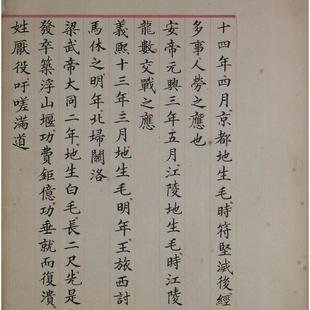 十四年四月京都地生毛時符堅滅後經
多事人勞之應也
安帝元興三年五月江陵地生毛時江陵
龍數交戰之應
義熙十三年三月地生毛明年王旅西討
馬休之明年北埽關洛
梁武帝大同二年地生白毛長二尺先是
發卒築浮山堰功費鉅億功垂就而復潰
姓厭役吁嗟滿道